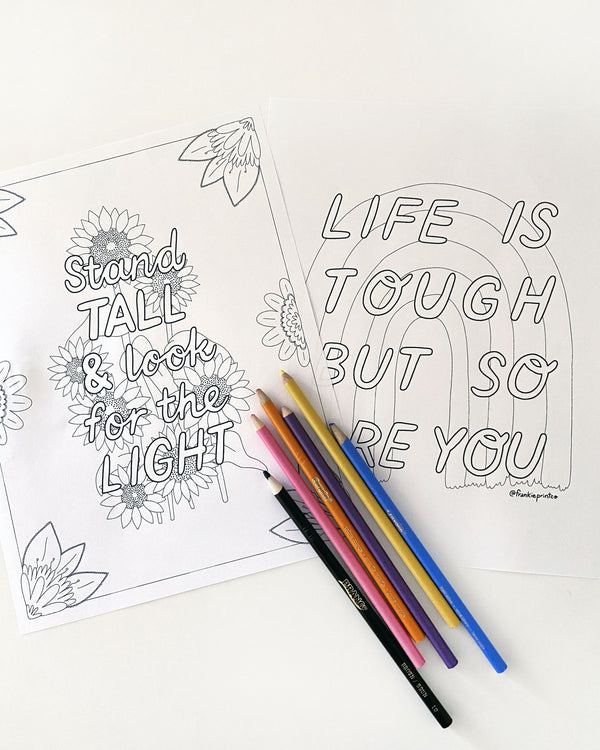 Stand
TALL
& look
for the
LIGHT
LIFE IS
TOUGH
BUT SO
ARE YOU
@frankieprintco